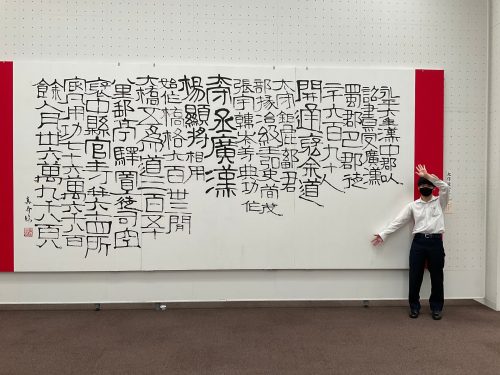 永平六年漢中郡以
詔書受廣漢
蜀郡巴郡徒
二千六百九十人
開通褒余道
太守鉅鹿鄐君
部掾冶級王弘史荀茂
張宇韓岑等典功作
太守丞廣漢
楊顯將相用
始作橋格六百卅三間
大橋五為道二百五十
八里郵亭驛置徒司空
褒中縣官寺并六十四所
用功七十六萬六千八百
餘人卅六萬九千八百